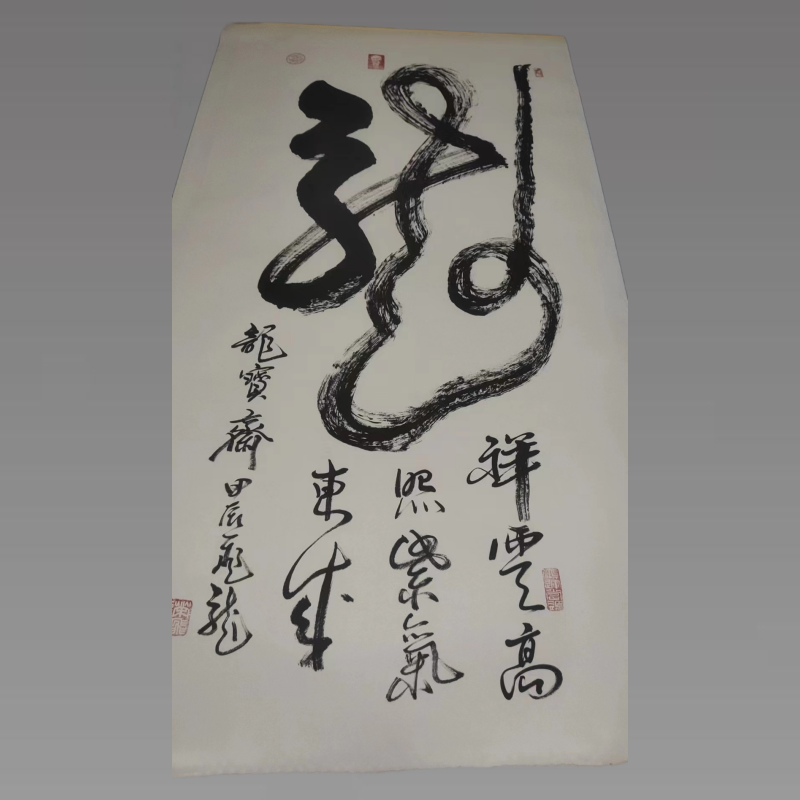 龍
祥雲高
照紫氣
東來
龍寶齋 甲辰 龍